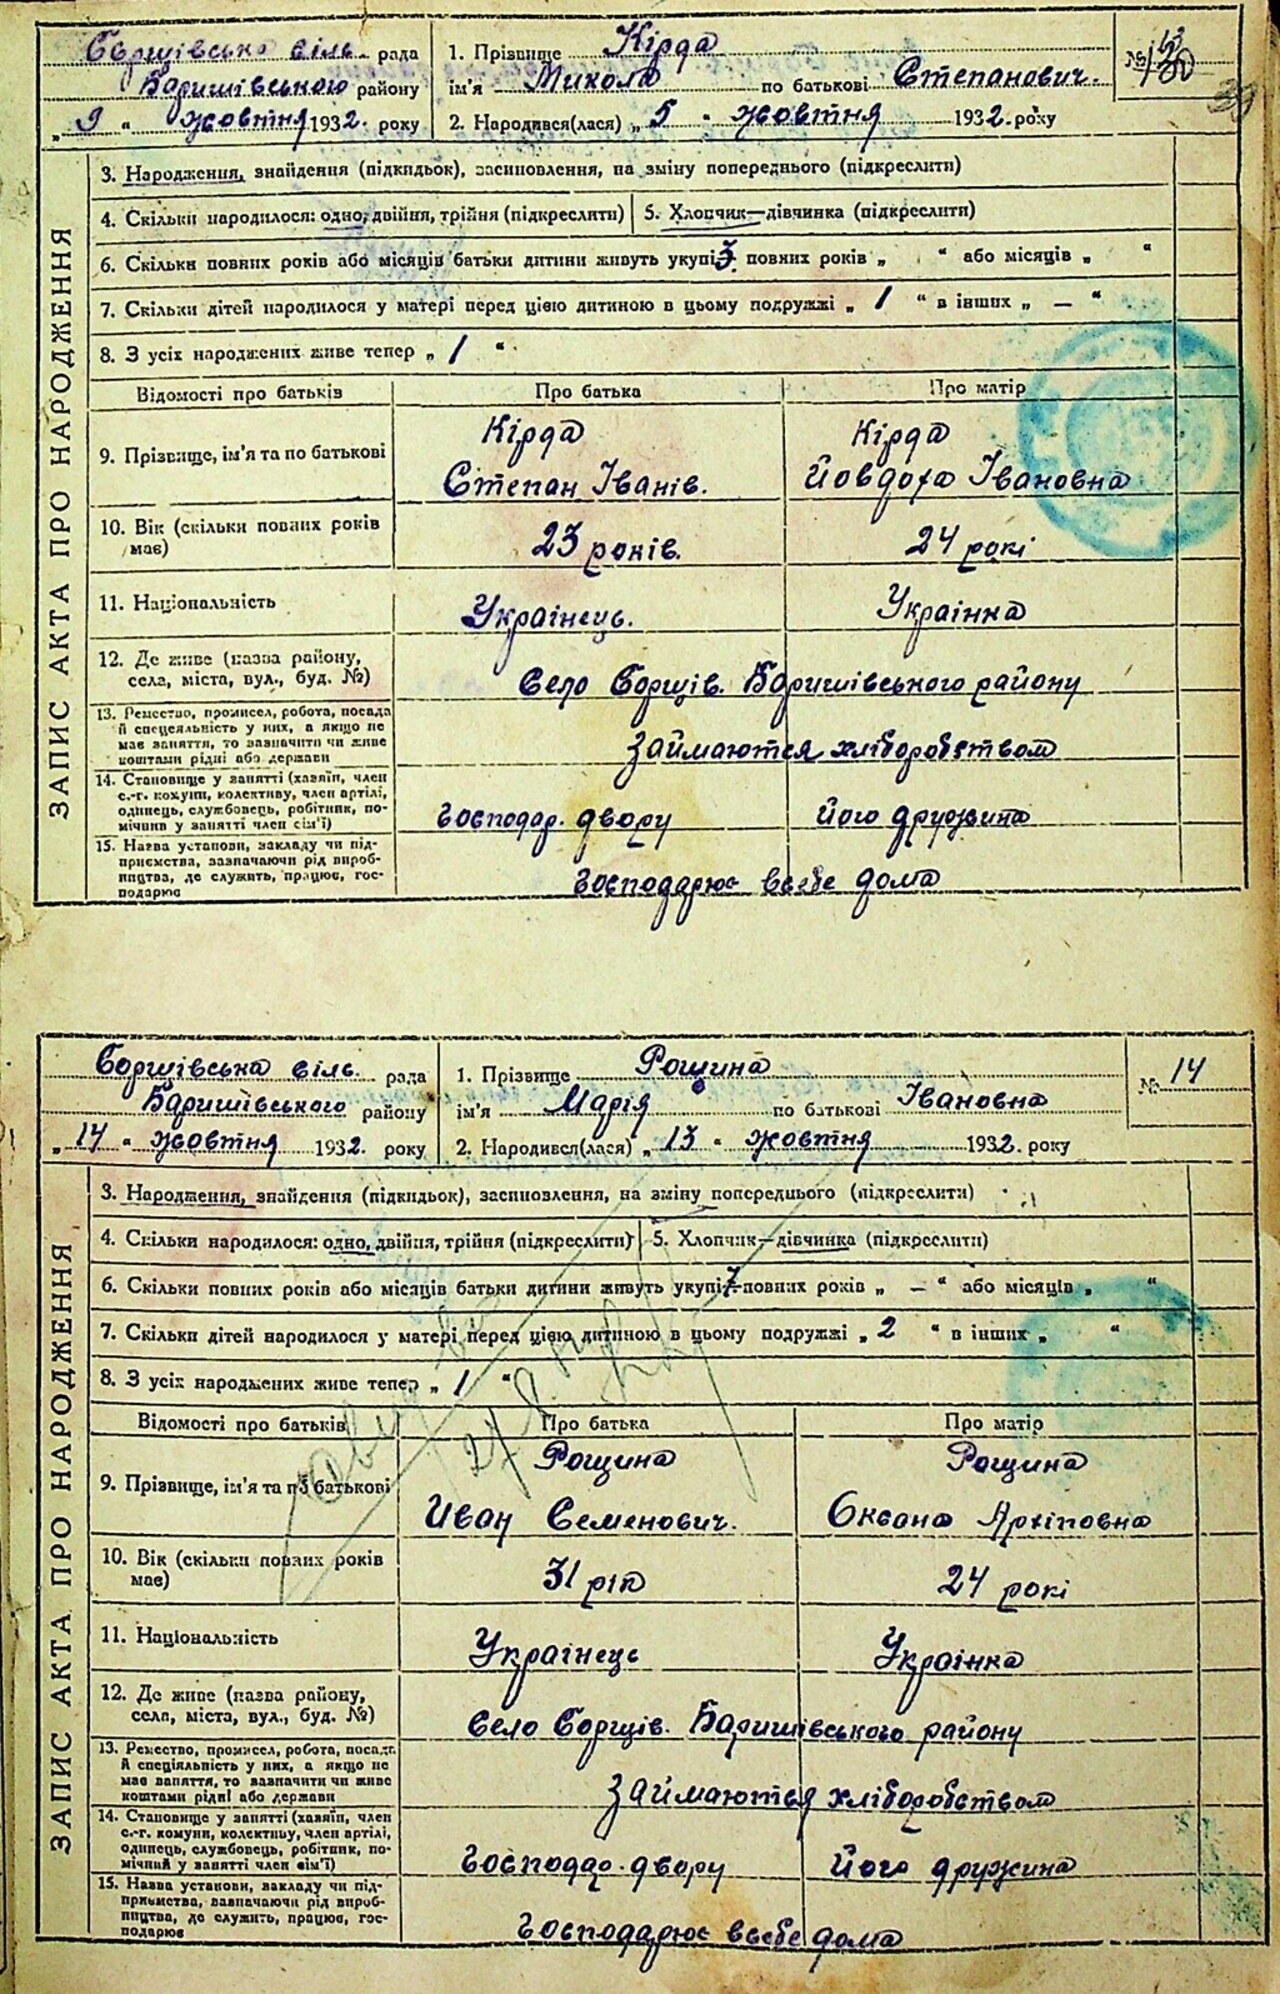 Борщівська віль. рада
Баришівського району
„ 9 “ жовтня 1932. року
1. Прізвище Кірда
ім'я Микола по батькові Степанович.
2. Народився(лася) „ 5 “ жовтня 1932. року
№
39
ЗАПИС АКТА ПРО НАРОДЖЕННЯ
3. Народження, знайдення (підкидьок), засиновлення, на зміну попереднього (підкреслити)
4. Скільки народилося: одно, двійня, трійня (підкреслити) 5. Хлопчик—дівчинка (підкреслити)
6. Скільки повних років або місяців батьки дитини живуть укупі 3 повних років „ “ або місяців „ “
7. Скільки дітей народилося у матері перед цією дитиною в цьому подружжі „ 1 “ в інших „ — “
8. З усіх народжених живе тепер „ 1 “
Відомості про батьків Про батька Про матір
9. Прізвище, ім'я та по батькові
Кірда
Степан Іванів.
Кірда
Йовдоха Івановна
10. Вік (скільки повних років
має)
23 років.
24 рокі
11. Національність Українець. Українка
12. Де живе (назва району,
села, міста, вул., буд. №)
Село Борщів. Баришівського району
13. Ремество, промисел, робота, посада
й спеціяльність у них, а якщо не
має заняття, то зазначити чи живе
коштами рідні або держави
Займаются хліборобством
14. Становище у занятті (хазяїн, член
с.-г. комуни, колективу, член артілі,
одинець, службовець, робітник, по-
мічник у занятті член сім'ї)
Господар. двору його дружина
15. Назва установи, закладу чи під-
приємства, зазначаючи рід вироб-
ництва, де служить, працює, гос-
подарює
Господарює всебе дома
Борщівська віль. рада
Баришівського району
„ 14 “ жовтня 1932. року
1. Прізвище Рощина
ім'я Марія по батькові Івановна
2. Народився(лася) „ 13 “ жовтня 1932. року
№ 14
ЗАПИС АКТА ПРО НАРОДЖЕННЯ
3. Народження, знайдення (підкидьок), засиновлення, на зміну попереднього (підкреслити)
4. Скільки народилося: одно, двійня, трійня (підкреслити) 5. Хлопчик—дівчинка (підкреслити)
6. Скільки повних років або місяців батьки дитини живуть укупі 7 повних років „ — “ або місяців „ “
7. Скільки дітей народилося у матері перед цією дитиною в цьому подружжі „ 2 “ в інших „ “
8. З усіх народжених живе тепер „ 1 “
Відомості про батьків Про батька Про матір
9. Прізвище, ім'я та по батькові
Рощина
Иван Семенович.
Рощина
Оксана Архіповна
10. Вік (скільки повних років
має)
31 рік
24 рокі
11. Національність Українець Українка
12. Де живе (назва району,
села, міста, вул., буд. №)
Село Борщів. Баришівського району
13. Ремество, промисел, робота, посада
й спеціяльність у них, а якщо не
має заняття, то зазначити чи живе
коштами рідні або держави
Займаються хліборобством
14. Становище у занятті (хазяїн, член
с.-г. комуни, колективу, член артілі,
одинець, службовець, робітник, по-
мічний у занятті член сім'ї)
Господар. двору його дружина
15. Назва установи, закладу чи під-
приємства, зазначаючи рід вироб-
ництва, де служить, працює, гос-
подарює
Господарює всебе дома